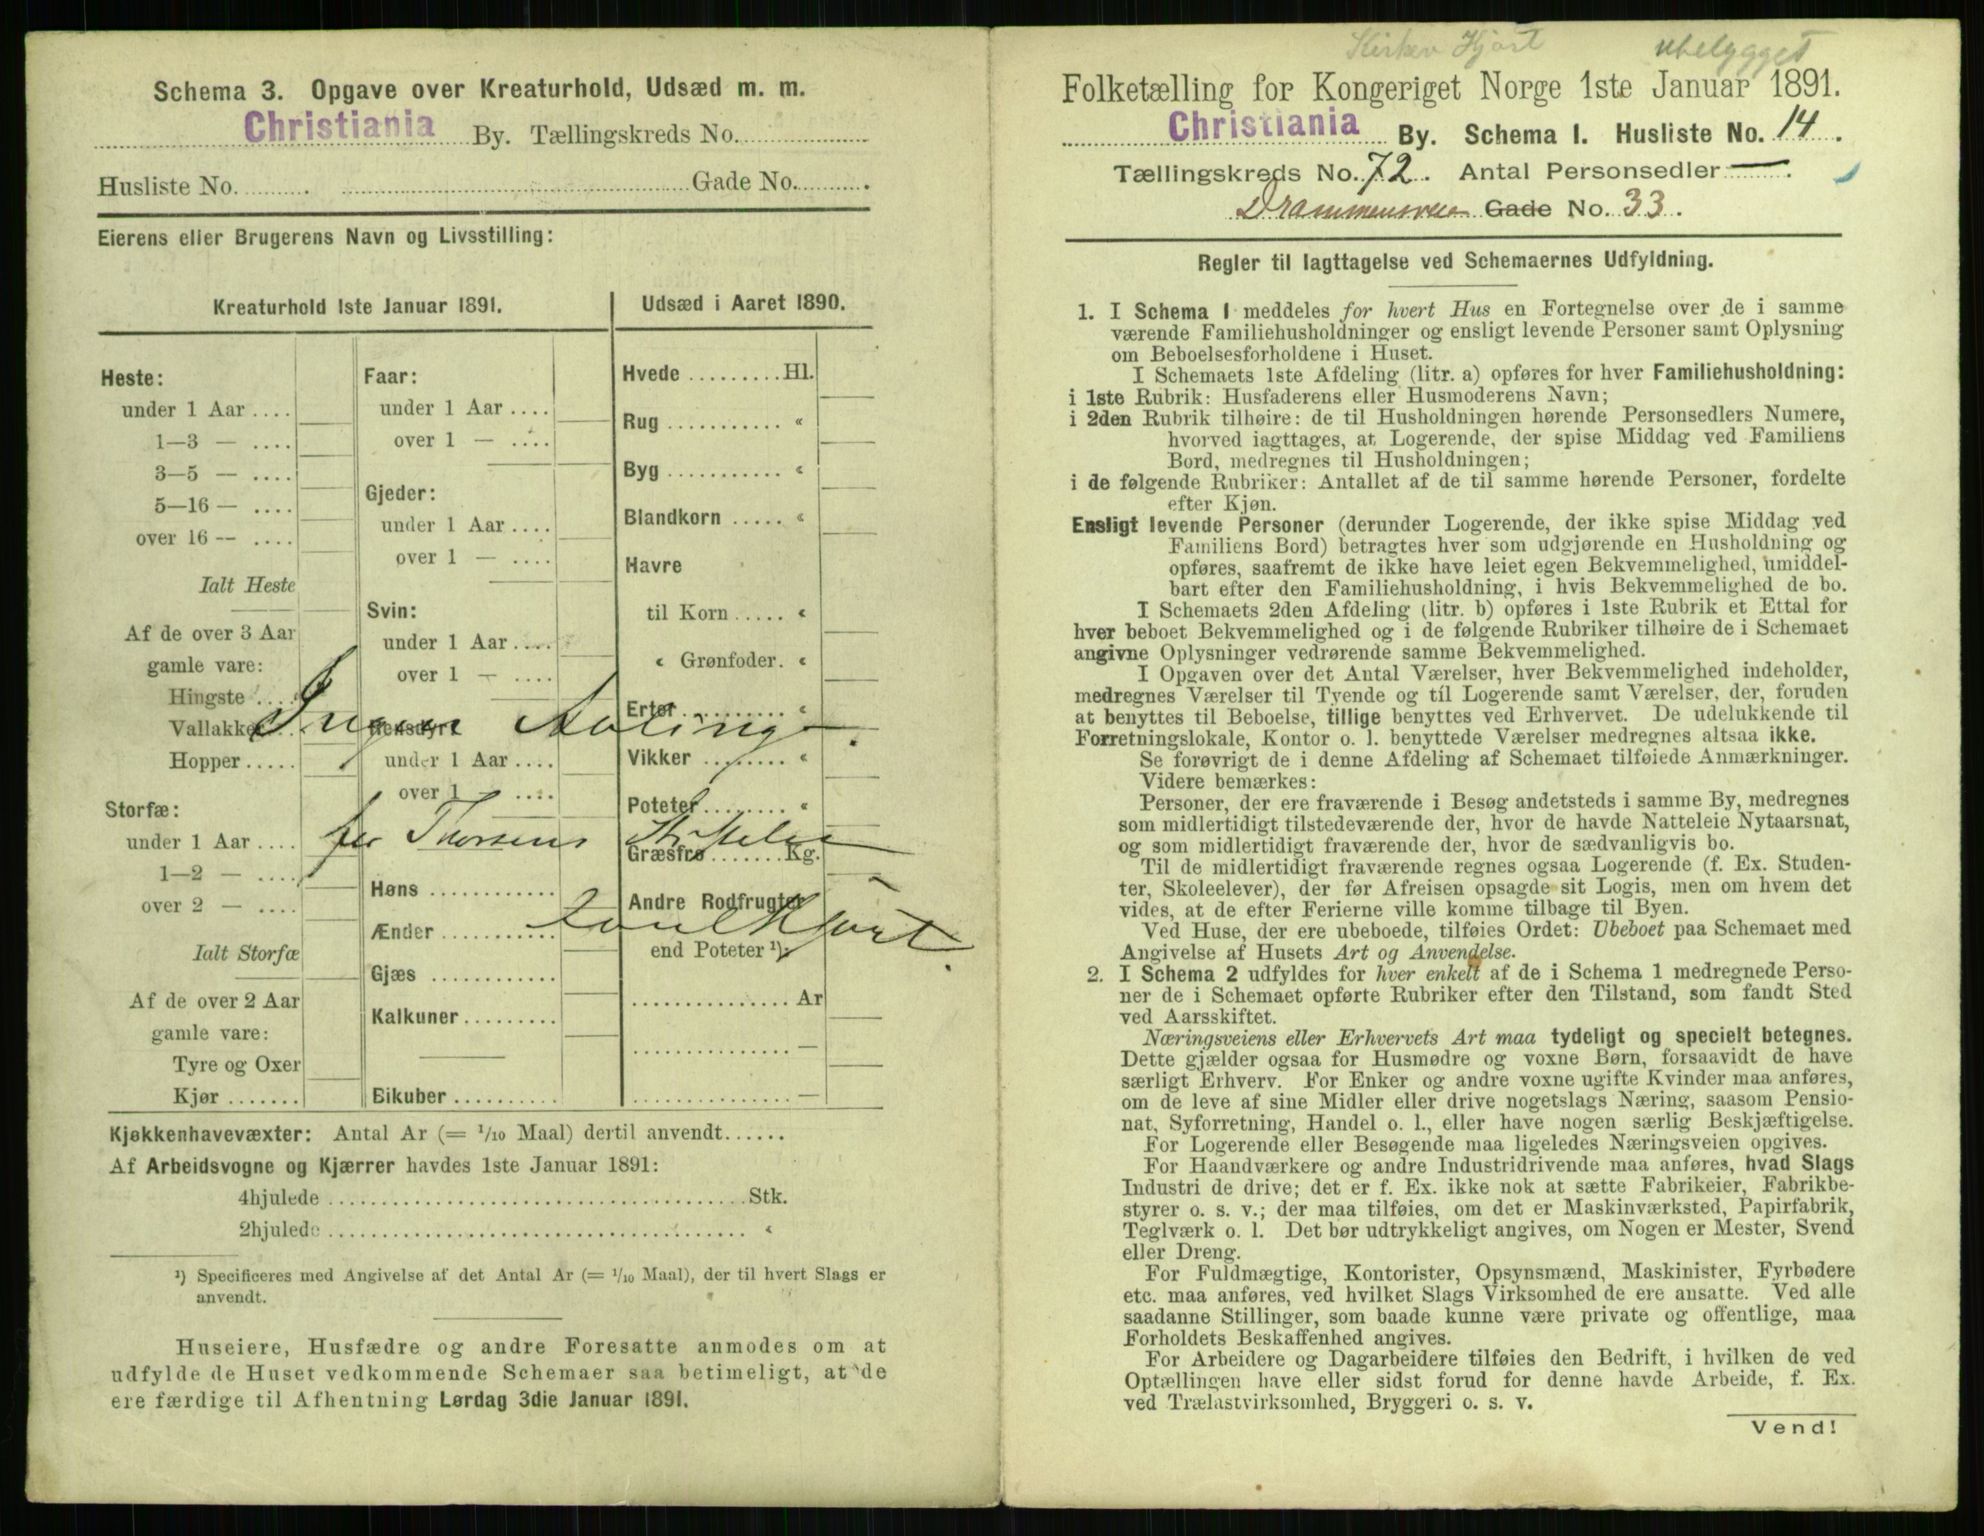 Schema 3. Opgave over Kreaturhold, Udsæd m. m.
Christiania By. Tællingskreds No.
Husliste No. Gade No.
Eierens eller Brugerens Navn og Livsstilling:
Kreaturhold 1ste Januar 1891.
Heste:
under 1 Aar ....
1—3 — ....
3—5 — ....
5—16 — ....
over 16 -- ....
Ialt Heste
Af de over 3 Aar
gamle vare:
Hingste ....
Vallakker
Hopper .....
Storfæ:
under 1 Aar ....
1—2 — ....
over 2 — ....
Ialt Storfæ
Af de over 2 Aar
gamle vare:
Tyre og Oxer
Kjør .......
Faar:
under 1 Aar ....
over 1 — ....
Gjeder:
under 1 Aar ....
over 1 — ....
Svin:
under 1 Aar ....
over 1 — ....
Rensdyr:
under 1 Aar ....
over 1 — ....
Høns ............
Ænder ...........
Gjæs ............
Kalkuner.........
Eikuber ..........
Udsæd i Aaret 1890.
Hvede .........Hl.
Rug ........... «
Byg ........... «
Blandkorn ..... «
Havre
til Korn ..... «
« Grønfoder. «
Erter .......... «
Vikker ........ «
Poteter ........ «
Græsfrø .......Kg.
Andre Rodfrugter
end Poteter ¹):
............... Ar
............... —
............... —
Ingen Avling.
for Thorsens
Hjort.
Kjøkkenhavevæxter: Antal Ar (= 1/10 Maal) dertil anvendt......
Af Arbeidsvogne og Kjærrer havdes 1ste Januar 1891:
4hjulede ........ Stk.
2hjulede ........ «
¹) Specificeres med Angivelse af det Antal Ar (= 1/10 Maal), der til hvert Slags er
anvendt.
Huseiere, Husfædre og andre Foresatte anmodes om at
udfylde de Huset vedkommende Schemaer saa betimeligt, at de
ere færdige til Afhentning Lørdag 3die Januar 1891.
Hjort ubebygget
Folketælling for Kongeriget Norge 1ste Januar 1891.
Christiania By. Schema 1. Husliste No. 14.
Tællingskreds No. 72. Antal Personsedler — .
Drammensveien Gade No. 33.
Regler til Iagttagelse ved Schemaernes Udfyldning.
1. I Schema 1 meddeles for hvert Hus en Fortegnelse over de i samme
værende Familiehusholdninger og ensligt levende Personer samt Oplysning
om Beboelsesforholdene i Huset.
I Schemaets 1ste Afdeling (litr. a) opføres for hver Familiehusholdning:
i 1ste Rubrik: Husfaderens eller Husmoderens Navn;
i 2den Rubrik tilhøire: de til Husholdningen hørende Personsedlers Numere,
hvorved iagttages, at Logerende, der spise Middag ved Familiens
Bord, medregnes til Husholdningen;
i de følgende Rubriker: Antallet af de til samme hørende Personer, fordelte
efter Kjøn.
Ensligt levende Personer (derunder Logerende, der ikke spise Middag ved
Familiens Bord) betragtes hver som udgjørende en Husholdning og
opføres, saafremt de ikke have leiet egen Bekvemmelighed, umiddel-
bart efter den Familiehusholdning, i hvis Bekvemmelighed de bo.
I Schemaets 2den Afdeling (litr. b) opføres i 1ste Rubrik et Ettal for
hver beboet Bekvemmelighed og i de følgende Rubriker tilhøire de i Schemaet
angivne Oplysninger vedrørende samme Bekvemmelighed.
I Opgaven over det Antal Værelser, hver Bekvemmelighed indeholder,
medregnes Værelser til Tyende og til Logerende samt Værelser, der, foruden
at benyttes til Beboelse, tillige benyttes ved Erhvervet. De udelukkende til
Forretningslokale, Kontor o. l. benyttede Værelser medregnes altsaa ikke.
Se forøvrigt de i denne Afdeling af Schemaet tilføiede Anmærkninger.
Videre bemærkes:
Personer, der ere fraværende i Besøg andetsteds i samme By, medregnes
som midlertidigt tilstedeværende der, hvor de havde Natteleie Nytaarsnat,
og som midlertidigt fraværende der, hvor de sædvanligvis bo.
Til de midlertidigt fraværende regnes ogsaa Logerende (f. Ex. Studen-
ter, Skoleelever), der før Afreisen opsagde sit Logis, men om hvem det
vides, at de efter Ferierne ville komme tilbage til Byen.
Ved Huse, der ere ubeboede, tilføies Ordet: Ubeboet paa Schemaet med
Angivelse af Husets Art og Anvendelse.
2. I Schema 2 udfyldes for hver enkelt af de i Schema 1 medregnede Perso-
ner de i Schemaet opførte Rubriker efter den Tilstand, som fandt Sted
ved Aarsskiftet.
Næringsveiens eller Erhvervets Art maa tydeligt og specielt betegnes.
Dette gjælder ogsaa for Husmødre og voxne Børn, forsaavidt de have
særligt Erhverv. For Enker og andre voxne ugifte Kvinder maa anføres,
om de leve af sine Midler eller drive nogetslags Næring, saasom Pensio-
nat, Syforretning, Handel o. l., eller have nogen særlig Beskjæftigelse.
For Logerende eller Besøgende maa ligeledes Næringsveien opgives.
For Haandværkere og andre Industridrivende maa anføres, hvad Slags
Industri de drive; det er f. Ex. ikke nok at sætte Fabrikeier, Fabrikbe-
styrer o. s. v.; der maa tilføies, om det er Maskinværksted, Papirfabrik,
Teglværk o. l. Det bør udtrykkeligt angives, om Nogen er Mester, Svend
eller Dreng.
For Fuldmægtige, Kontorister, Opsynsmænd, Maskinister, Fyrbødere
etc. maa anføres, ved hvilket Slags Virksomhed de ere ansatte. Ved alle
saadanne Stillinger, som baade kunne være private og offentlige, maa
Forholdets Beskaffenhed angives.
For Arbeidere og Dagarbeidere tilføies den Bedrift, i hvilken de ved
Optællingen have eller sidst forud for denne havde Arbeide, f. Ex.
ved Trælastvirksomhed, Bryggeri o. s. v.
Vend!